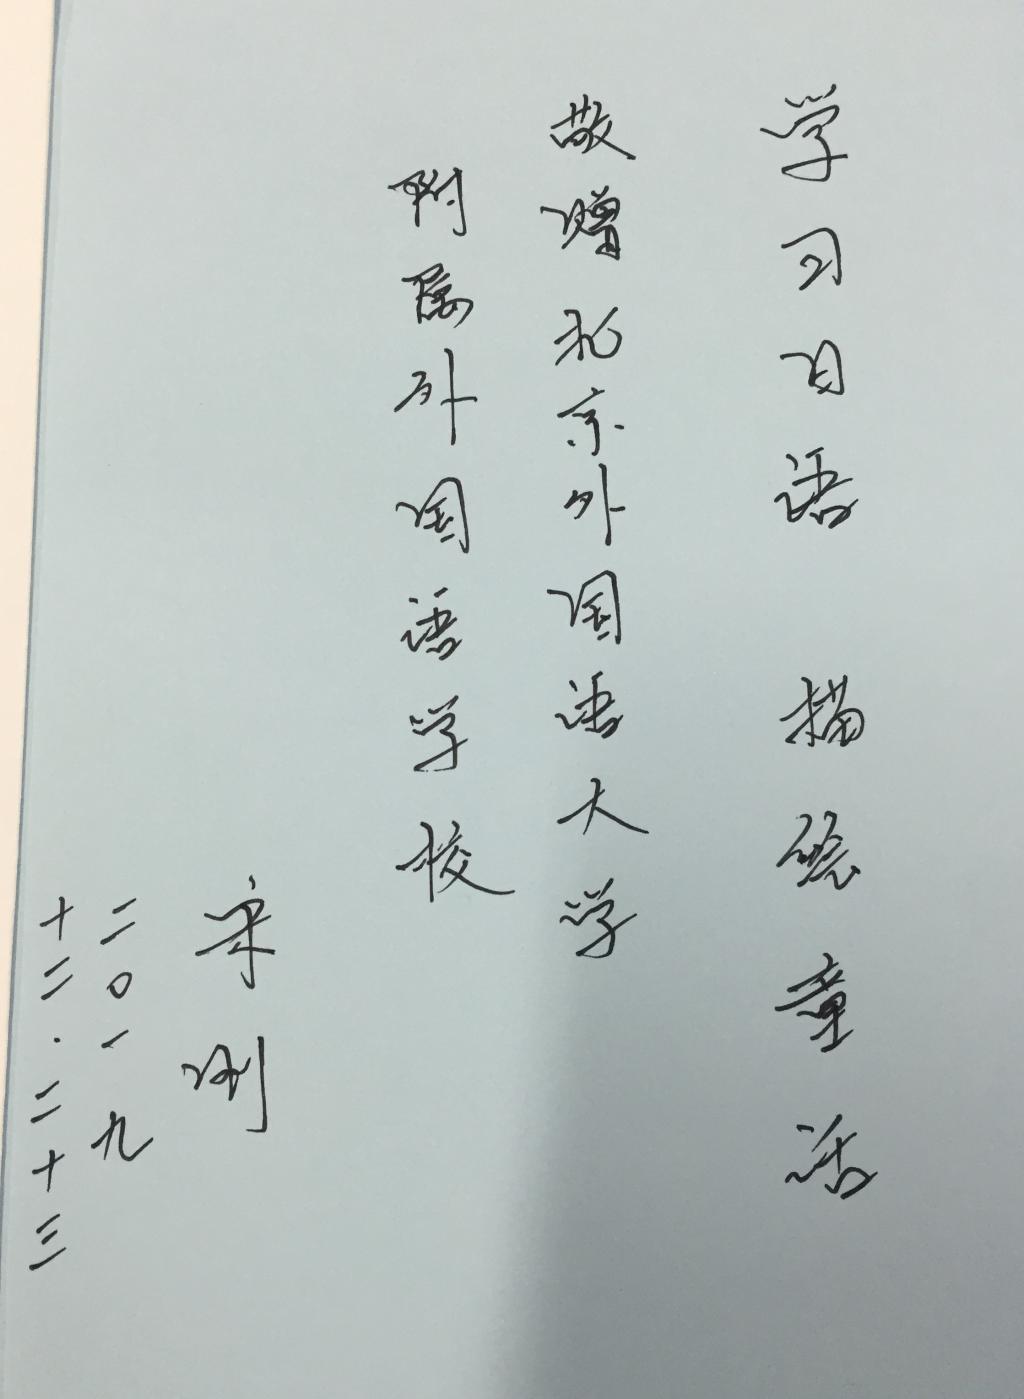 学习日语 描绘童话
敬赠北京外国语大学
附属外国语学校
宋刚
二〇一九
十二.二十三